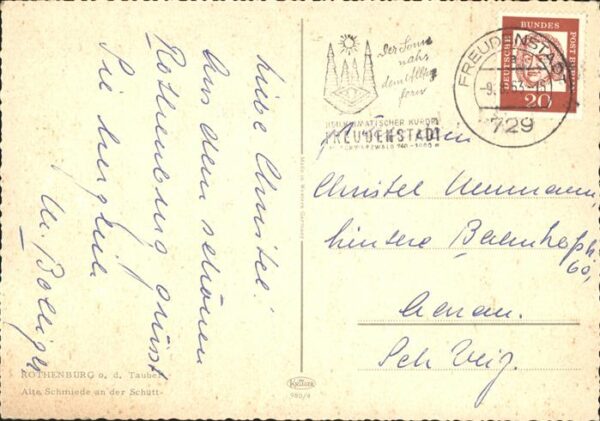 Liebe Christel!
Aus dem schönen
Rothenburg grüsst
Sie
M. Bolliger
ROTHENBURG o. d. Tauber
Alte Schmiede an der Schütt-
Made in Western Germany
Krüger
980/4
Der Sonne
nah,
dem Alltag
fern
HEILKLIMATISCHER KURORT
FREUDENSTADT
SCHWARZWALD 740-1000 m
FREUDENSTADT
729
DEUTSCHE BUNDESPOST
20
Fräulein
Christel Neumann,
hintere Bahnhofstr.
60,
Aarau.
Schweiz.